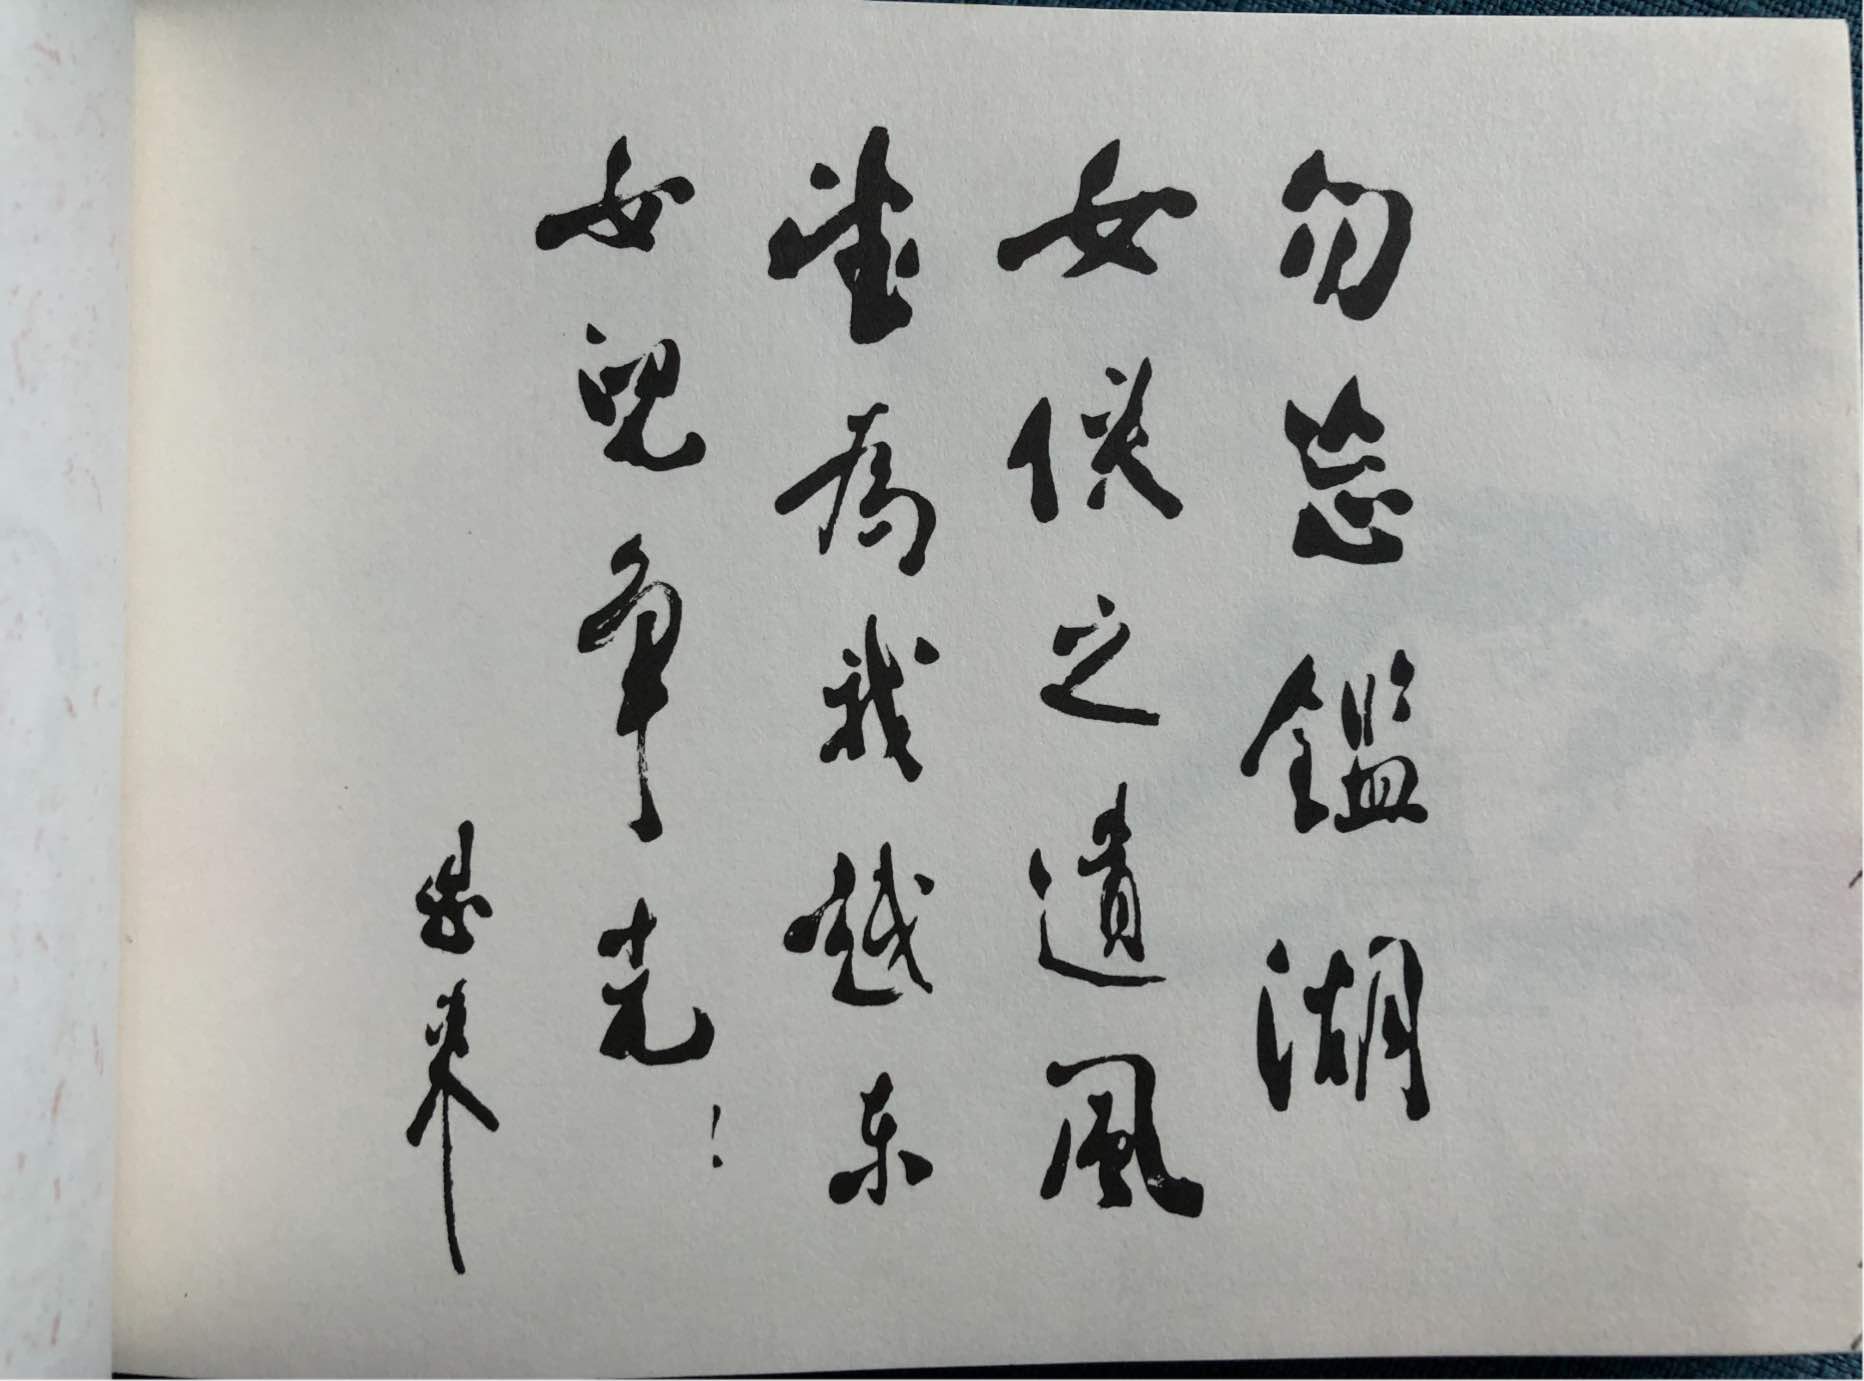 勿忘鑑湖
女俠之遺風
望為我越東
女兒爭光！
恩來